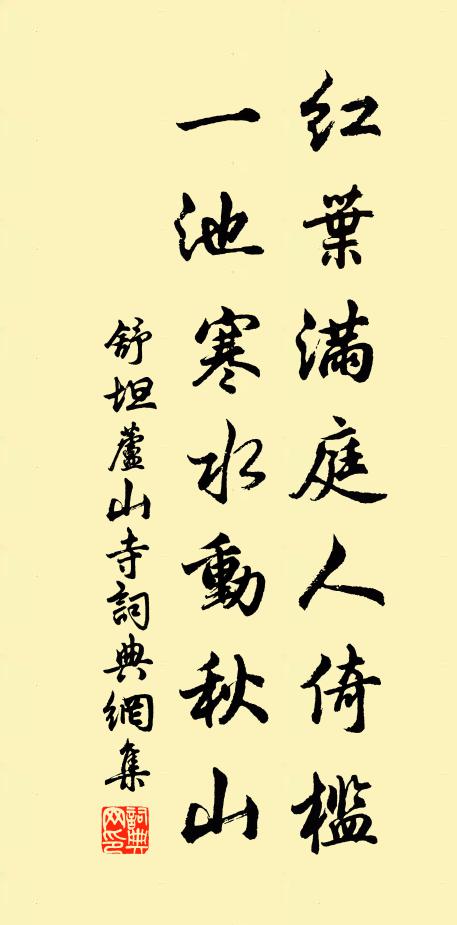 紅葉滿庭人倚檻
一池寒水動秋山
舒坦蘆山寺詞典網集
詞典网印